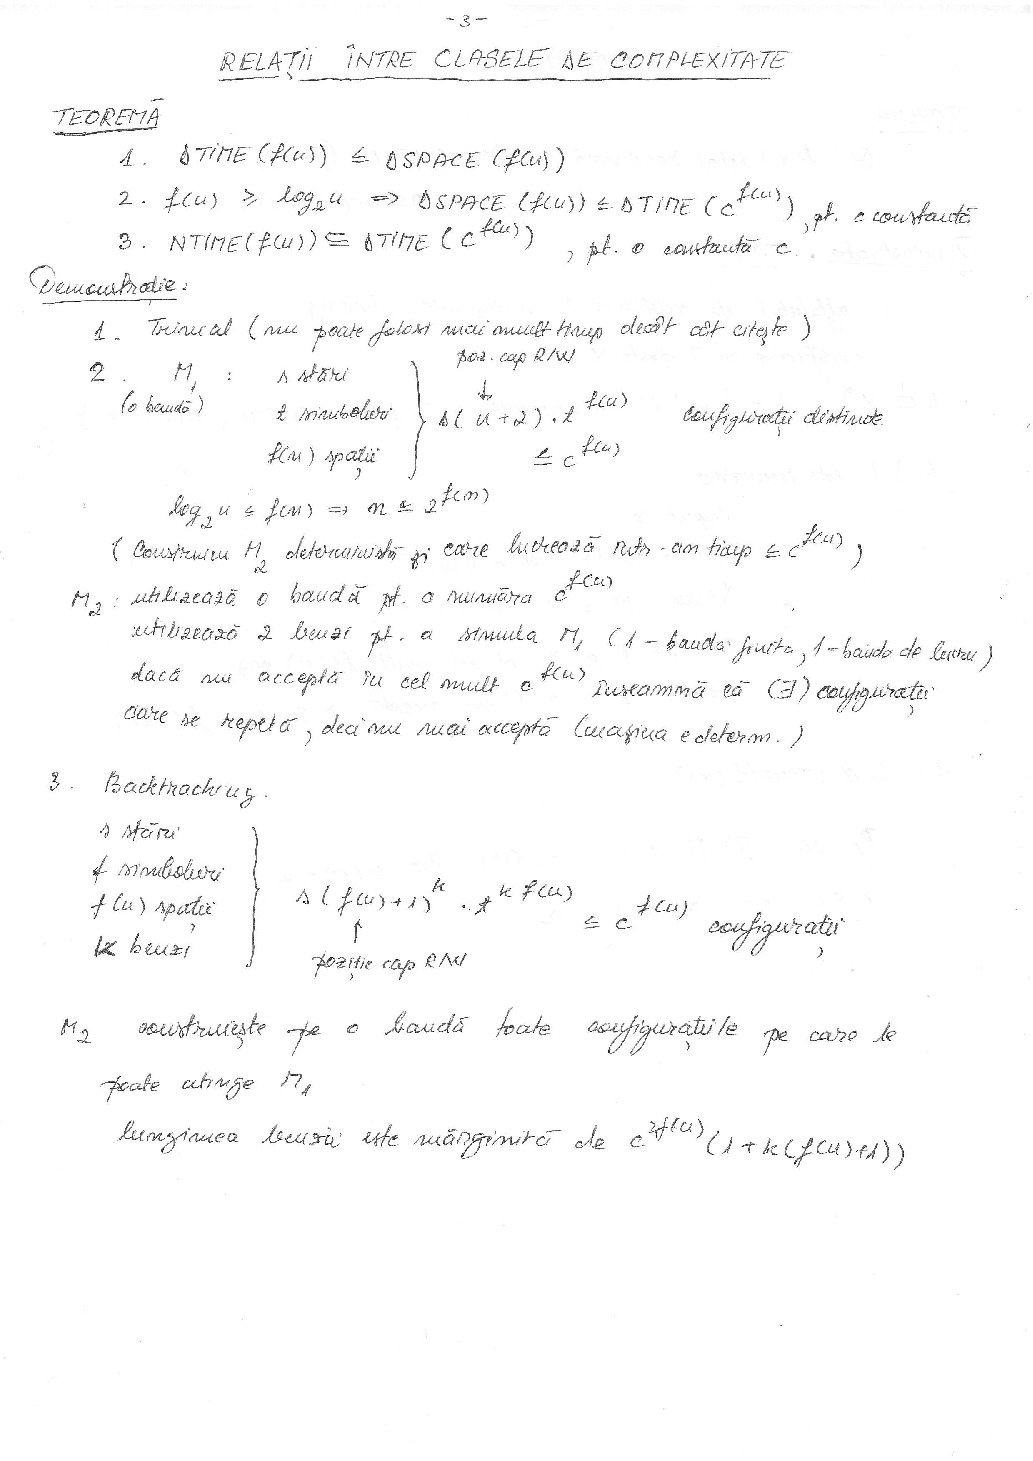 -3-
RELAȚII ÎNTRE CLASELE DE COMPLEXITATE
TEOREMĂ
1. DTIME (f(n)) ⊆ DSPACE (f(n))
2. f(n) ≥ log₂n ⇒ DSPACE (f(n)) ⊆ DTIME (c^f(n)), pt. c constantă
3. NTIME(f(n)) ⊆ DTIME (c^f(n)), pt. o constantă c.
Demonstrație:
1. Trivial (nu poate folosi mai mult timp decât cât citește)
poz. cap R/W
↓
2. M₁ : s stări
(o bandă) t simboluri } s(n+2).t^f(n) configurații distincte
f(n) spații ≤ c^f(n)
log₂n ≤ f(n) ⇒ n ≤ 2^f(n)
(Construim M₂ deterministă și care lucrează într-un timp ≤ c^f(n))
M₂ : utilizează o bandă pt. a număra c^f(n)
utilizează 2 benzi pt. a simula M₁ (1-banda, 1-banda de lucru)
dacă nu acceptă în cel mult c^f(n) înseamnă că (∃) configurații
care se repetă, deci nu mai acceptă (mașina e determ.)
3. Backtracking.
s stări
t simboluri
f(n) spații } s(f(n)+1)^k . t^k f(n) ≤ c^f(n) configurații
k benzi
↑
poziție cap R/W
M₂ construiește pe o bandă toate configurațiile pe care le
poate atinge M₁
lungimea benzii este mărginită de c^2f(n)(1+k(f(n)+1))